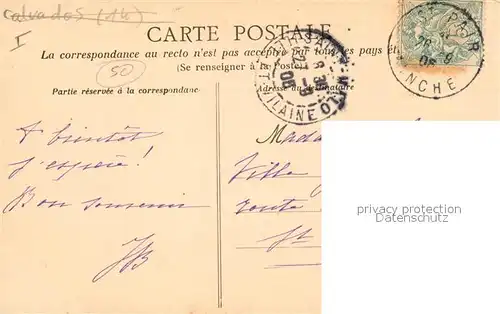 Calvados (14)
I
CARTE POSTALE
La correspondance au recto n'est pas acceptée par tous les pays ét
(Se renseigner à la Poste)
50
Partie réservée à la correspondance
Adresse du destinataire
MANCHE
ILLE-ET-VILAINE
A bientôt
j'espère!
Bon souvenir
JB
Mada
Villa
route
St
privacy protection
watermark